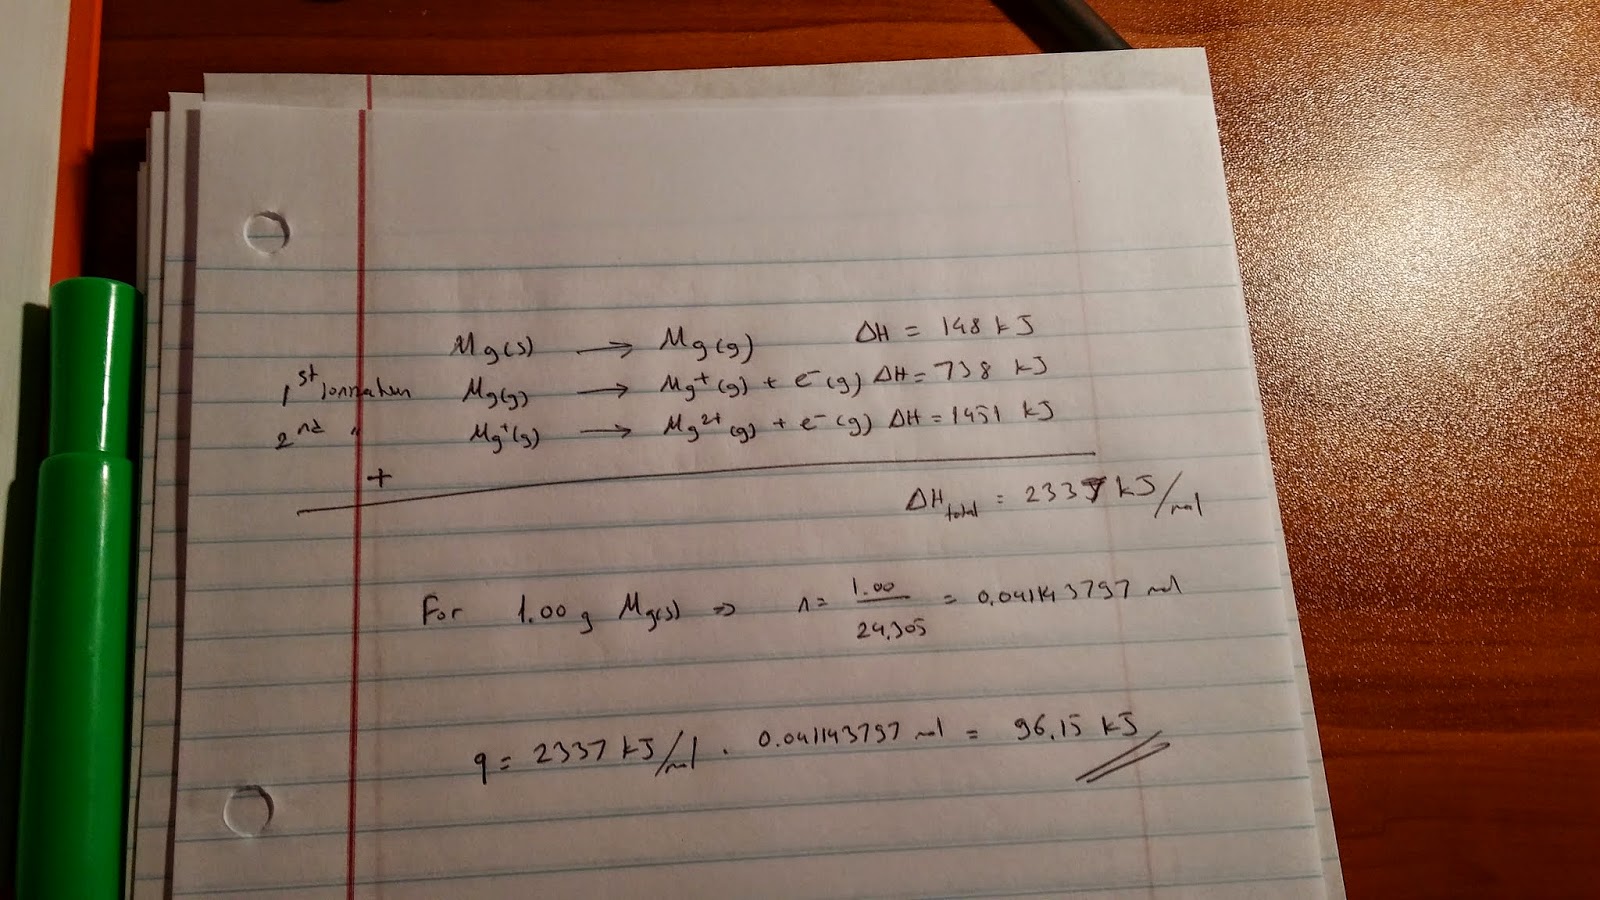 Mg(s) → Mg(g) ΔH = 148 kJ
1st Ionization Mg(g) → Mg⁺(g) + e⁻(g) ΔH = 738 kJ
2nd " Mg⁺(g) → Mg²⁺(g) + e⁻(g) ΔH = 1451 kJ
+
ΔH total = 2337 kJ/mol
For 1.00 g Mg(s) ⇒ n = 1.00/24.305 = 0.041143797 mol
q = 2337 kJ/mol · 0.041143797 mol = 96.15 kJ